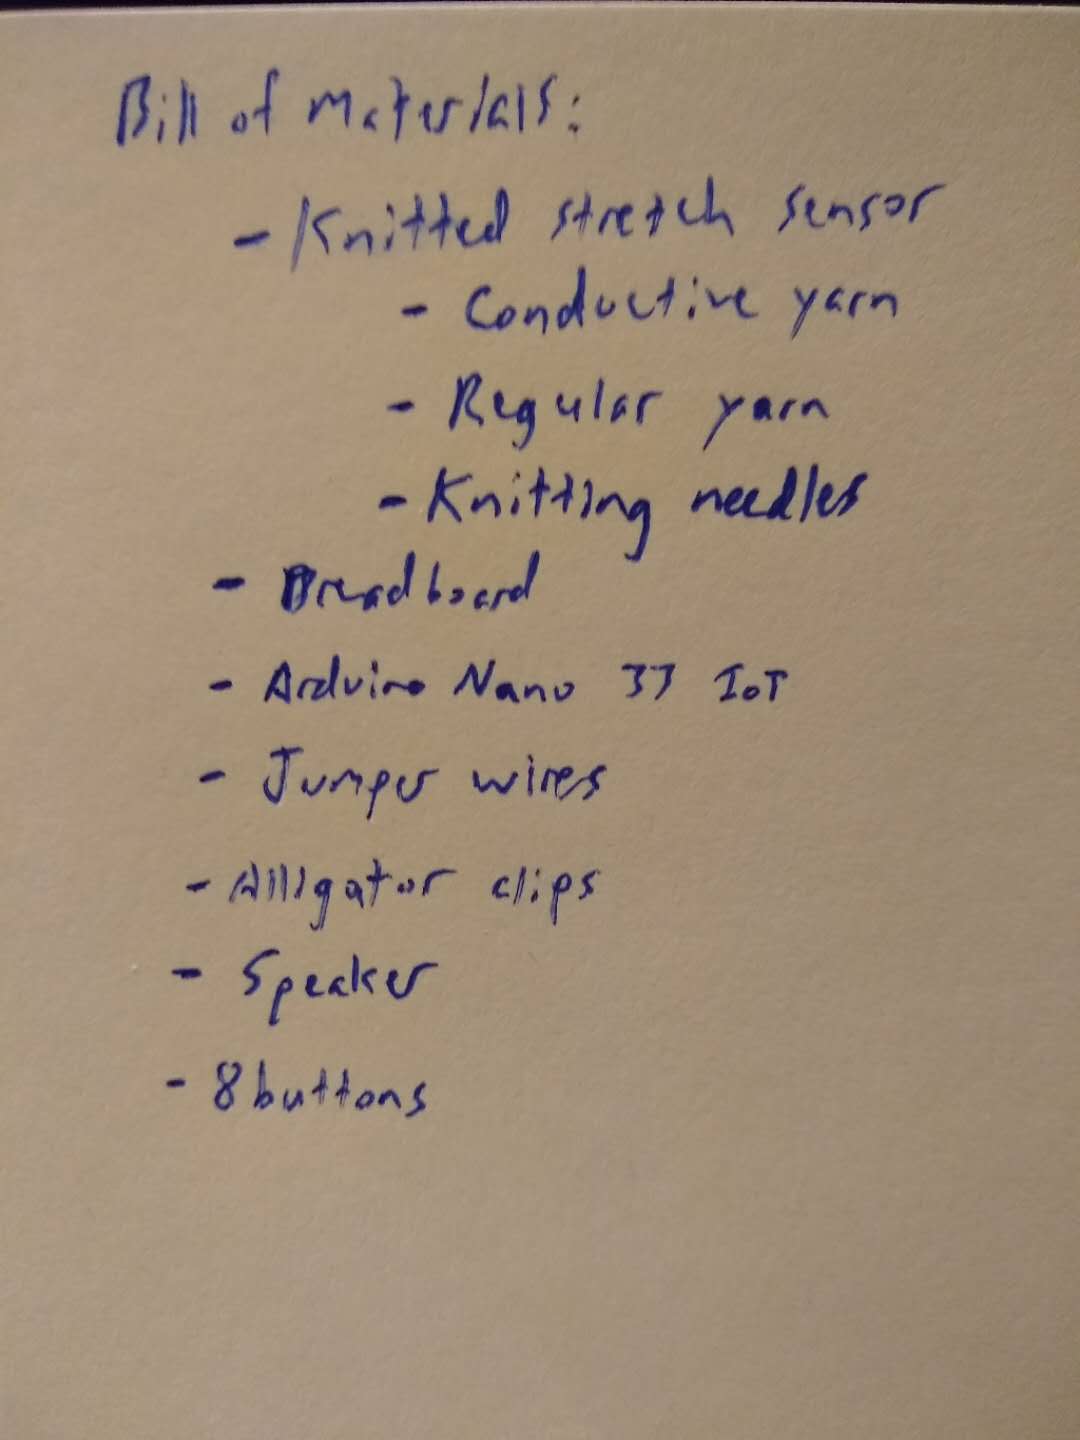 Bill of Materials:
- Knitted stretch sensor
- Conductive yarn
- Regular yarn
- Knitting needles
- Breadboard
- Arduino Nano 33 IoT
- Jumper wires
- Alligator clips
- Speaker
- 8 buttons